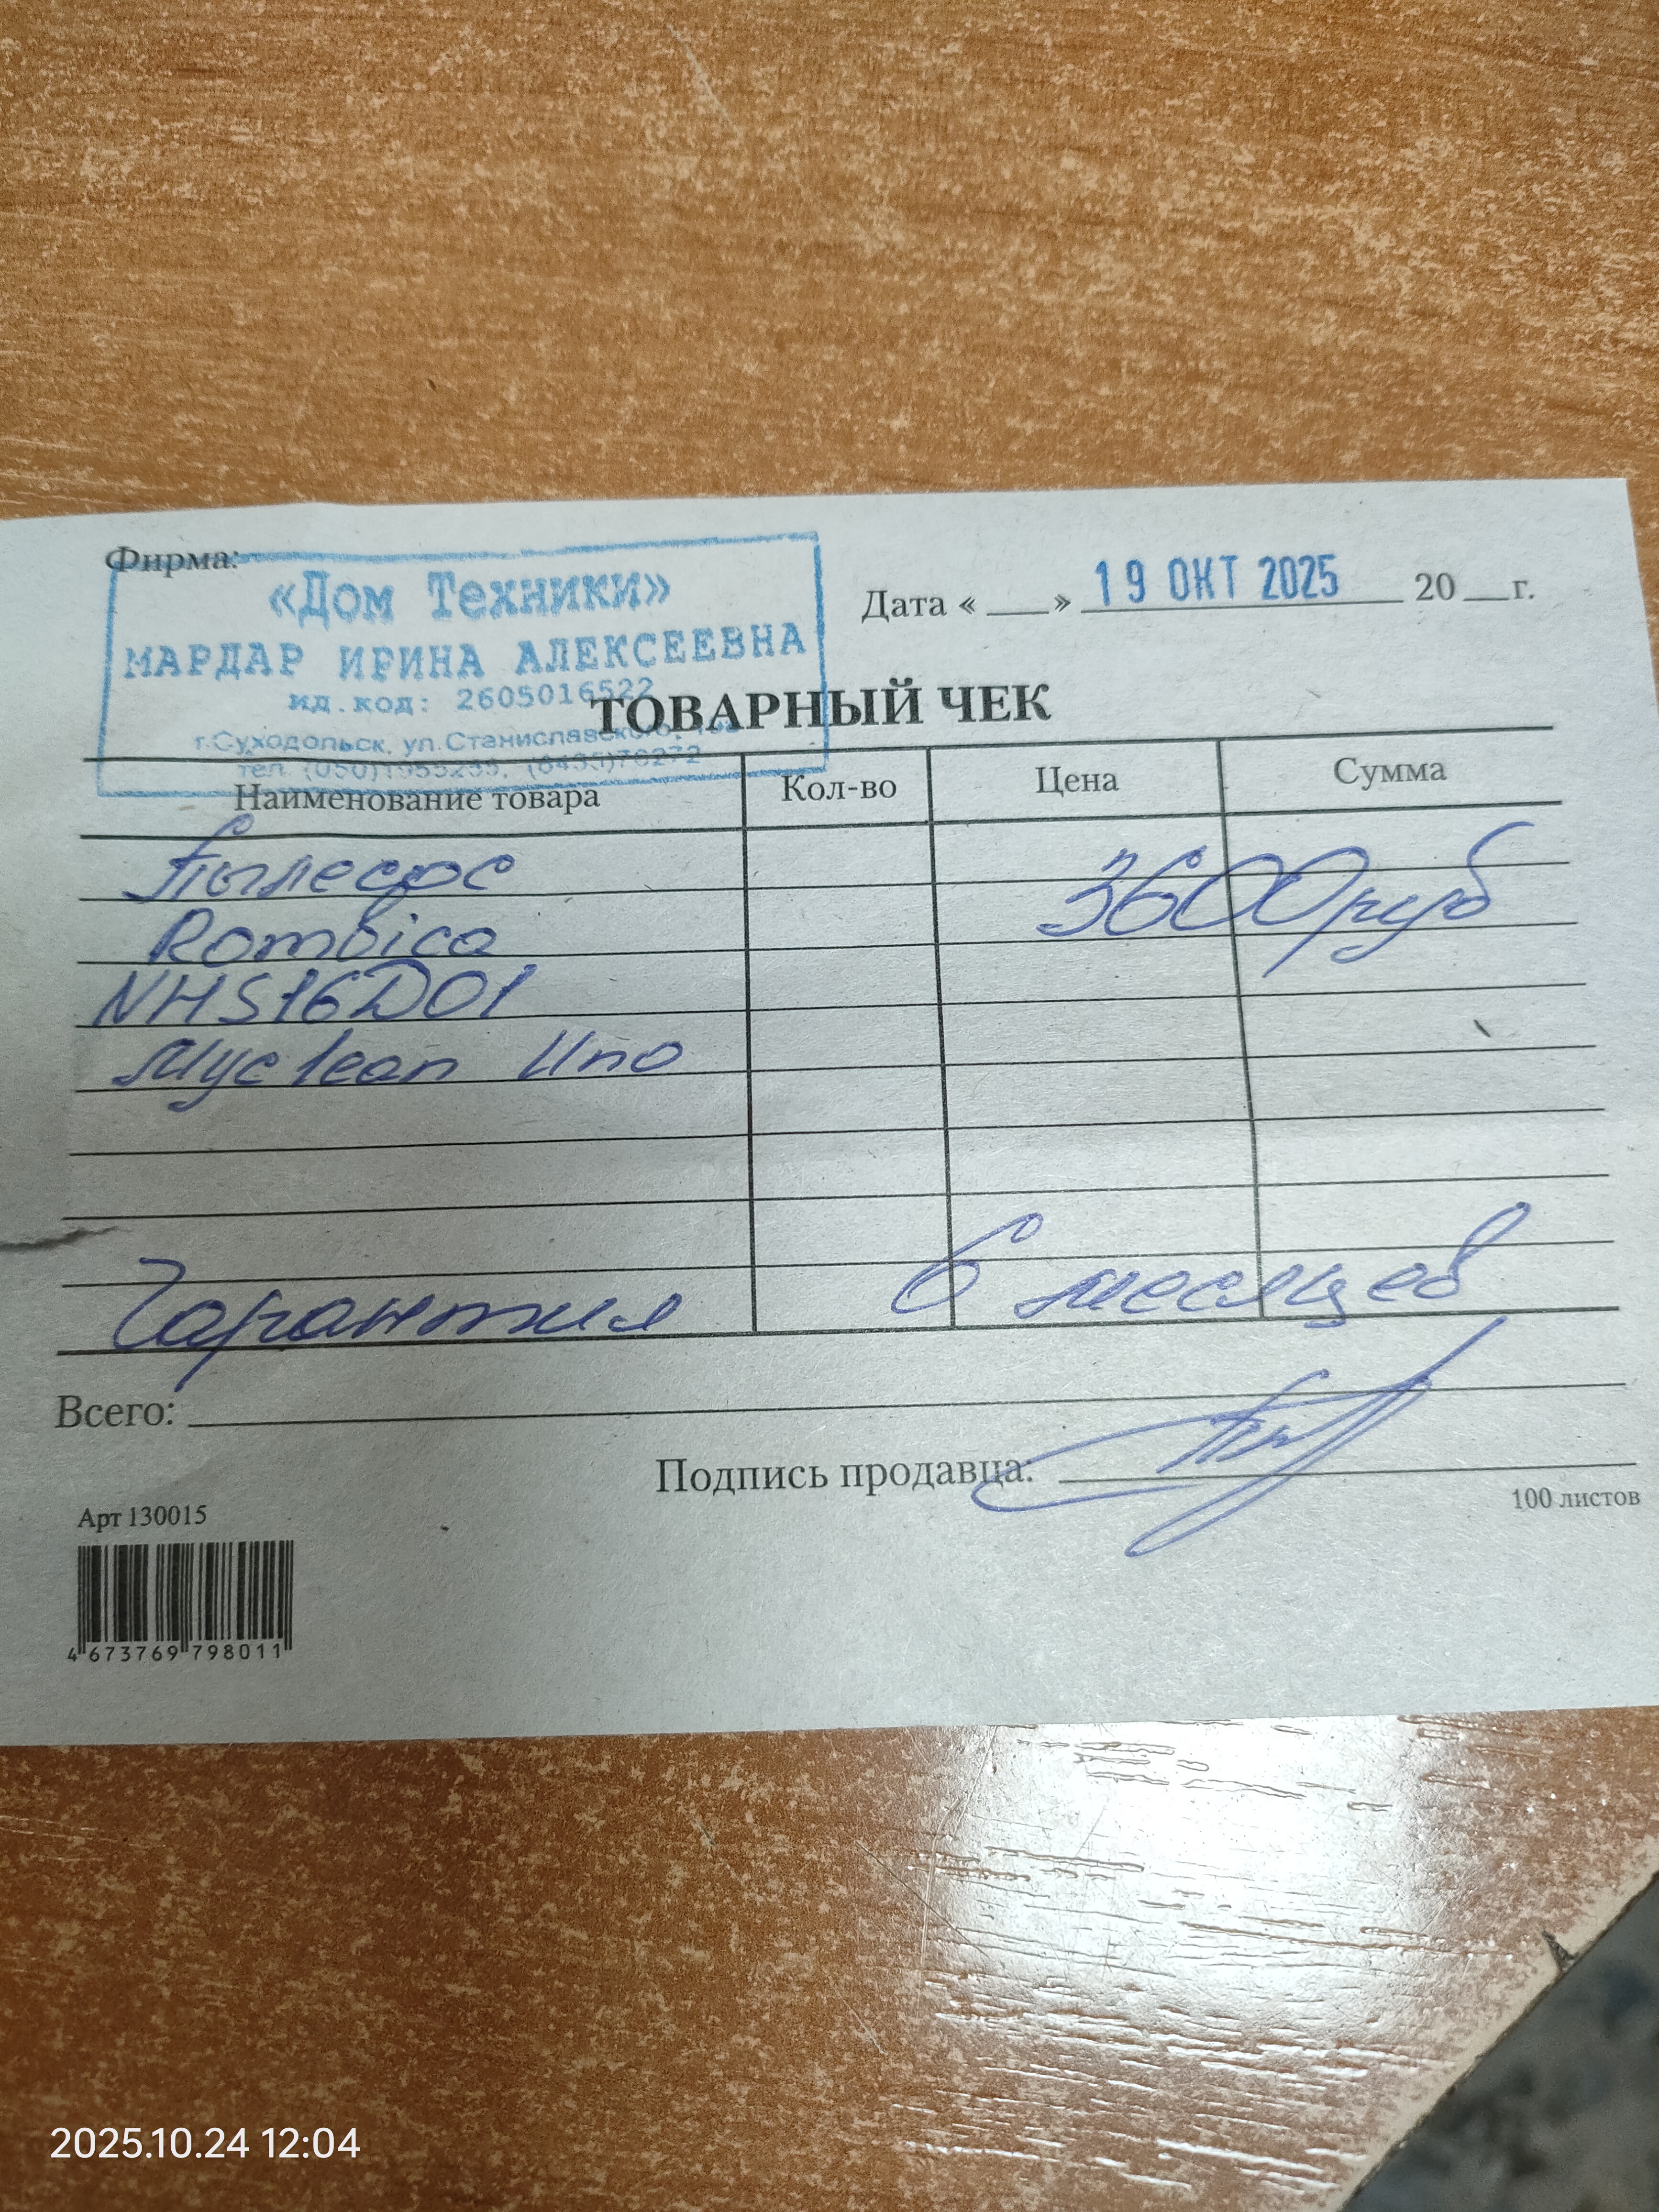 Фирма:
«Дом Техники»
МАРДАР ИРИНА АЛЕКСЕЕВНА
ид.код: 2605016522
г.Суходольск, ул.Станиславского,
тел. (050) (6435)70272
Дата « » 19 ОКТ 2025 20 г.
ТОВАРНЫЙ ЧЕК
Наименование товара Кол-во Цена Сумма
Пылесос
Rombica 3600 руб
NHS16D01
Myclean Uno
Гарантия 6 месяцев
Всего:
Подпись продавца:
100 листов
Арт 130015
4 673769 798011
2025.10.24 12:04